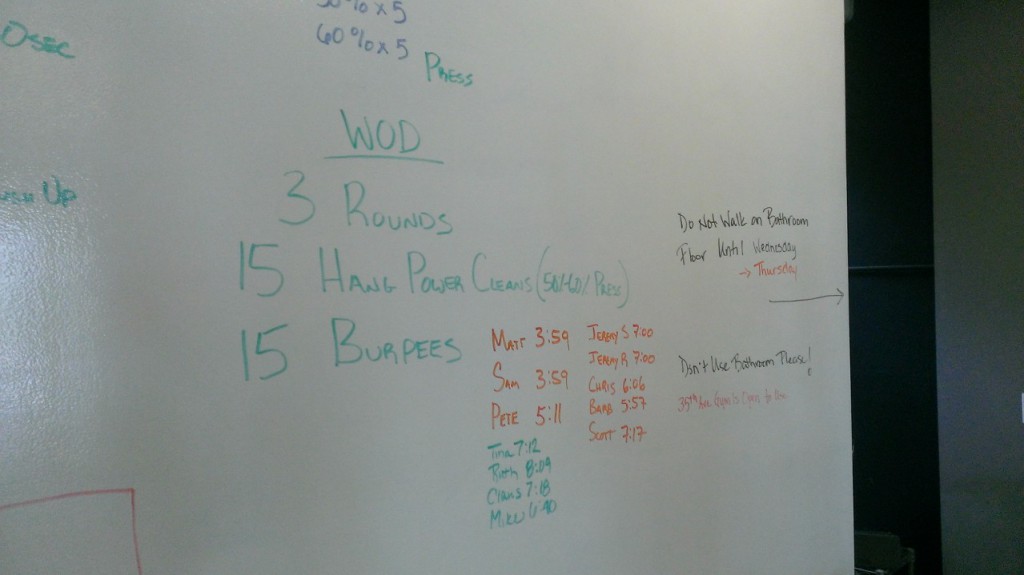 0SEC
50%x5
60%x5
PRESS
WOD
3 ROUNDS
15 HANG POWER CLEANS (50%-60% PRESS)
15 BURPEES
UP
MATT 3:59
SAM 3:59
PETE 5:11
Tina 7:12
Ruth 8:09
Chris 7:18
Mike 6:40
JEREMY S 7:00
JEREMY R 7:00
CHRIS 6:06
BARB 5:57
SCOTT 7:17
Do Not Walk on Bathroom
Floor Until Wednesday
→ Thursday
Don't Use Bathroom Please!
35th Ave is Open to Use